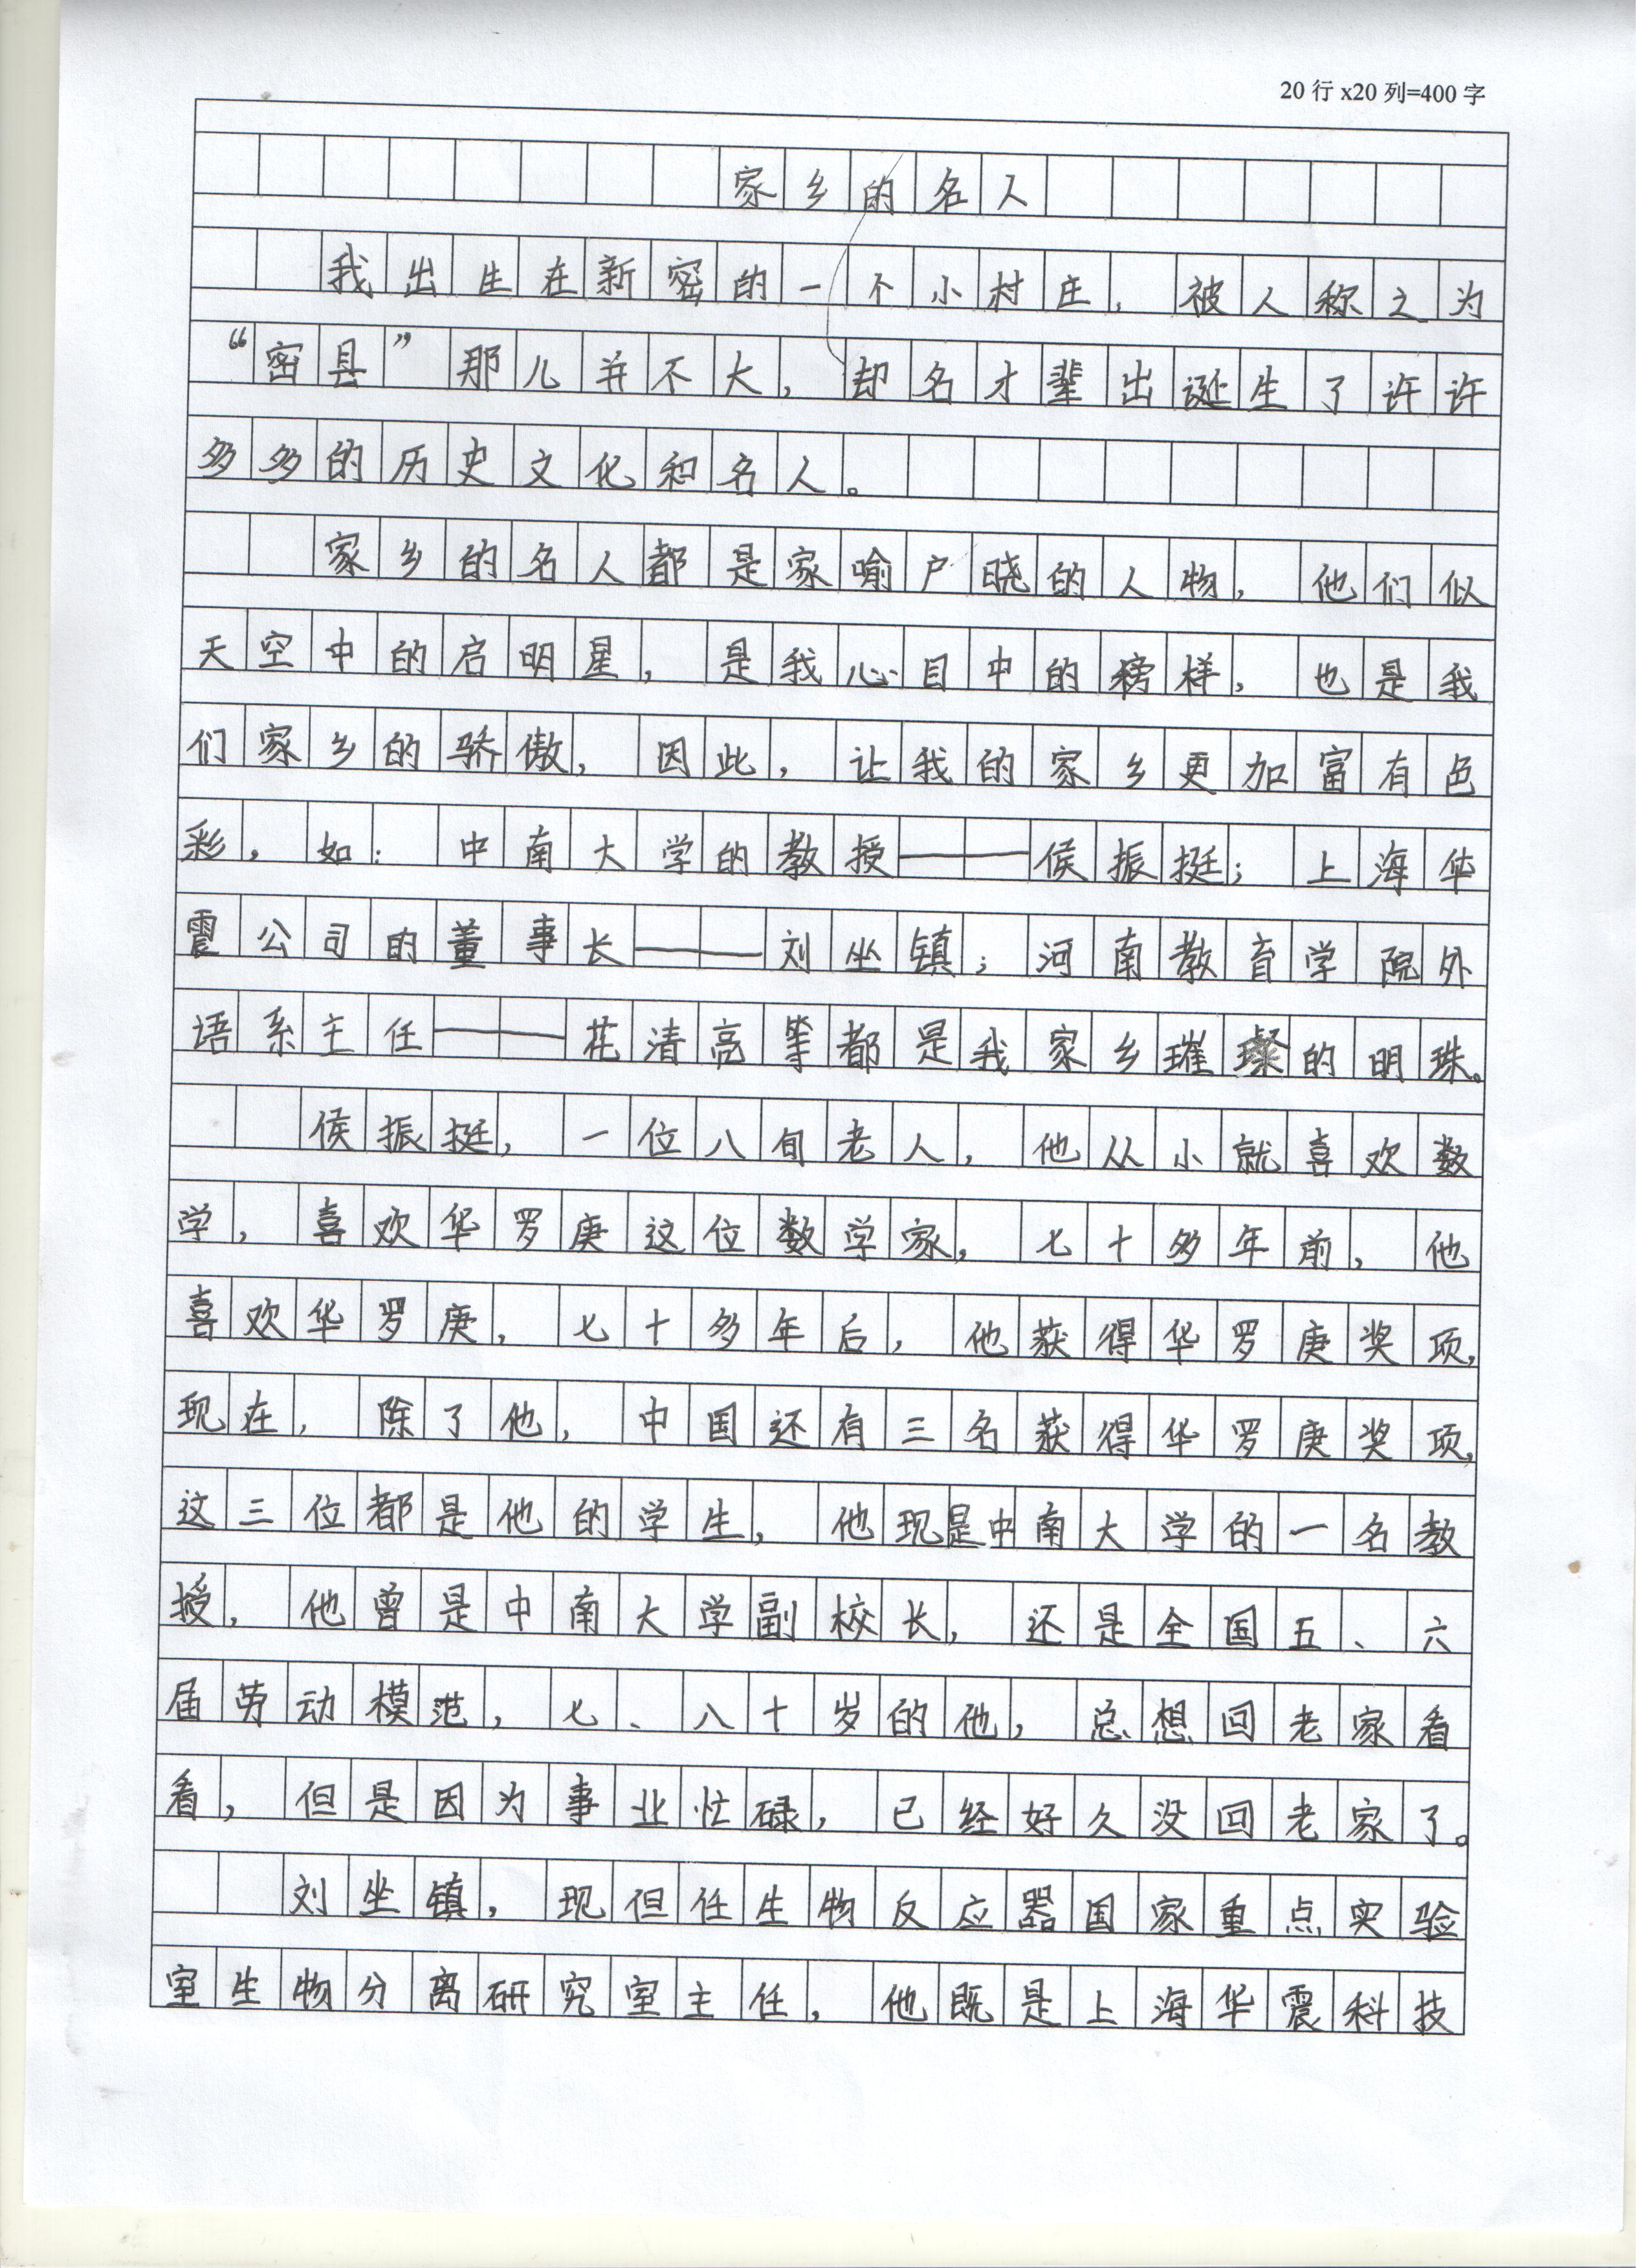 20行x20列=400字
家乡的名人
我出生在新密的一个小村庄，被人称之为
“密县”那儿并不大，却名才辈出诞生了许许
多多的历史文化和名人。
家乡的名人都是家喻户晓的人物，他们似
天空中的启明星，是我心目中的榜样，也是我
们家乡的骄傲，因此，让我的家乡更加富有色
彩，如：中南大学的教授——侯振挺；上海华
震公司的董事长——刘坐镇；河南教育学院外
语系主任——花清亮等都是我家乡璀璨的明珠。
侯振挺，一位八旬老人，他从小就喜欢数
学，喜欢华罗庚这位数学家，七十多年前，他
喜欢华罗庚，七十多年后，他获得华罗庚奖项，
现在，除了他，中国还有三名获得华罗庚奖项，
这三位都是他的学生，他现是中南大学的一名教
授，他曾是中南大学副校长，还是全国五、六
届劳动模范，七、八十岁的他，总想回老家看
看，但是因为事业忙碌，已经好久没回老家了。
刘坐镇，现但任生物反应器国家重点实验
室生物分离研究室主任，他既是上海华震科技